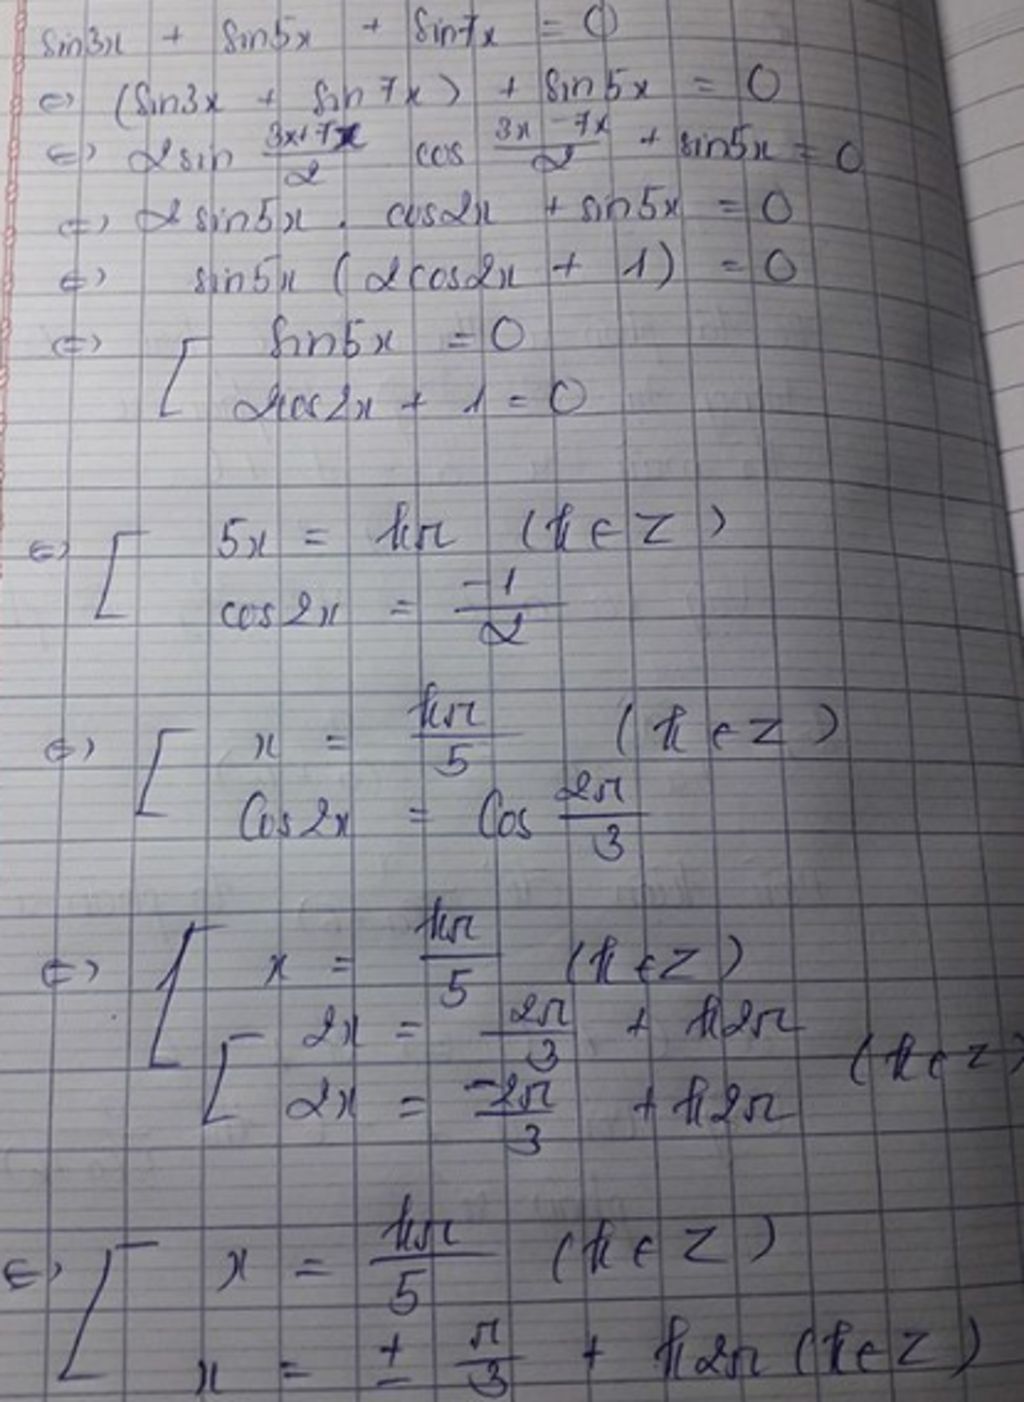 sin3x + sin5x + sin7x = 0
⇔ (sin3x + sin7x) + sin5x = 0
⇔ 2sin (3x+7x)/2 cos (3x-7x)/2 + sin5x = 0
⇔ 2sin5x . cos2x + sin5x = 0
⇔ sin5x (2cos2x + 1) = 0
⇔ [ sin5x = 0
2cos2x + 1 = 0
⇔ [ 5x = kπ (k ∈ Z)
cos2x = -1/2
⇔ [ x = kπ/5 (k ∈ Z)
Cos2x = Cos 2π/3
⇔ [ x = kπ/5 (k ∈ Z)
[ 2x = 2π/3 + k2π
2x = -2π/3 + k2π (k ∈ Z)
⇔ [ x = kπ/5 (k ∈ Z)
x = ± π/3 + k2π (k ∈ Z)